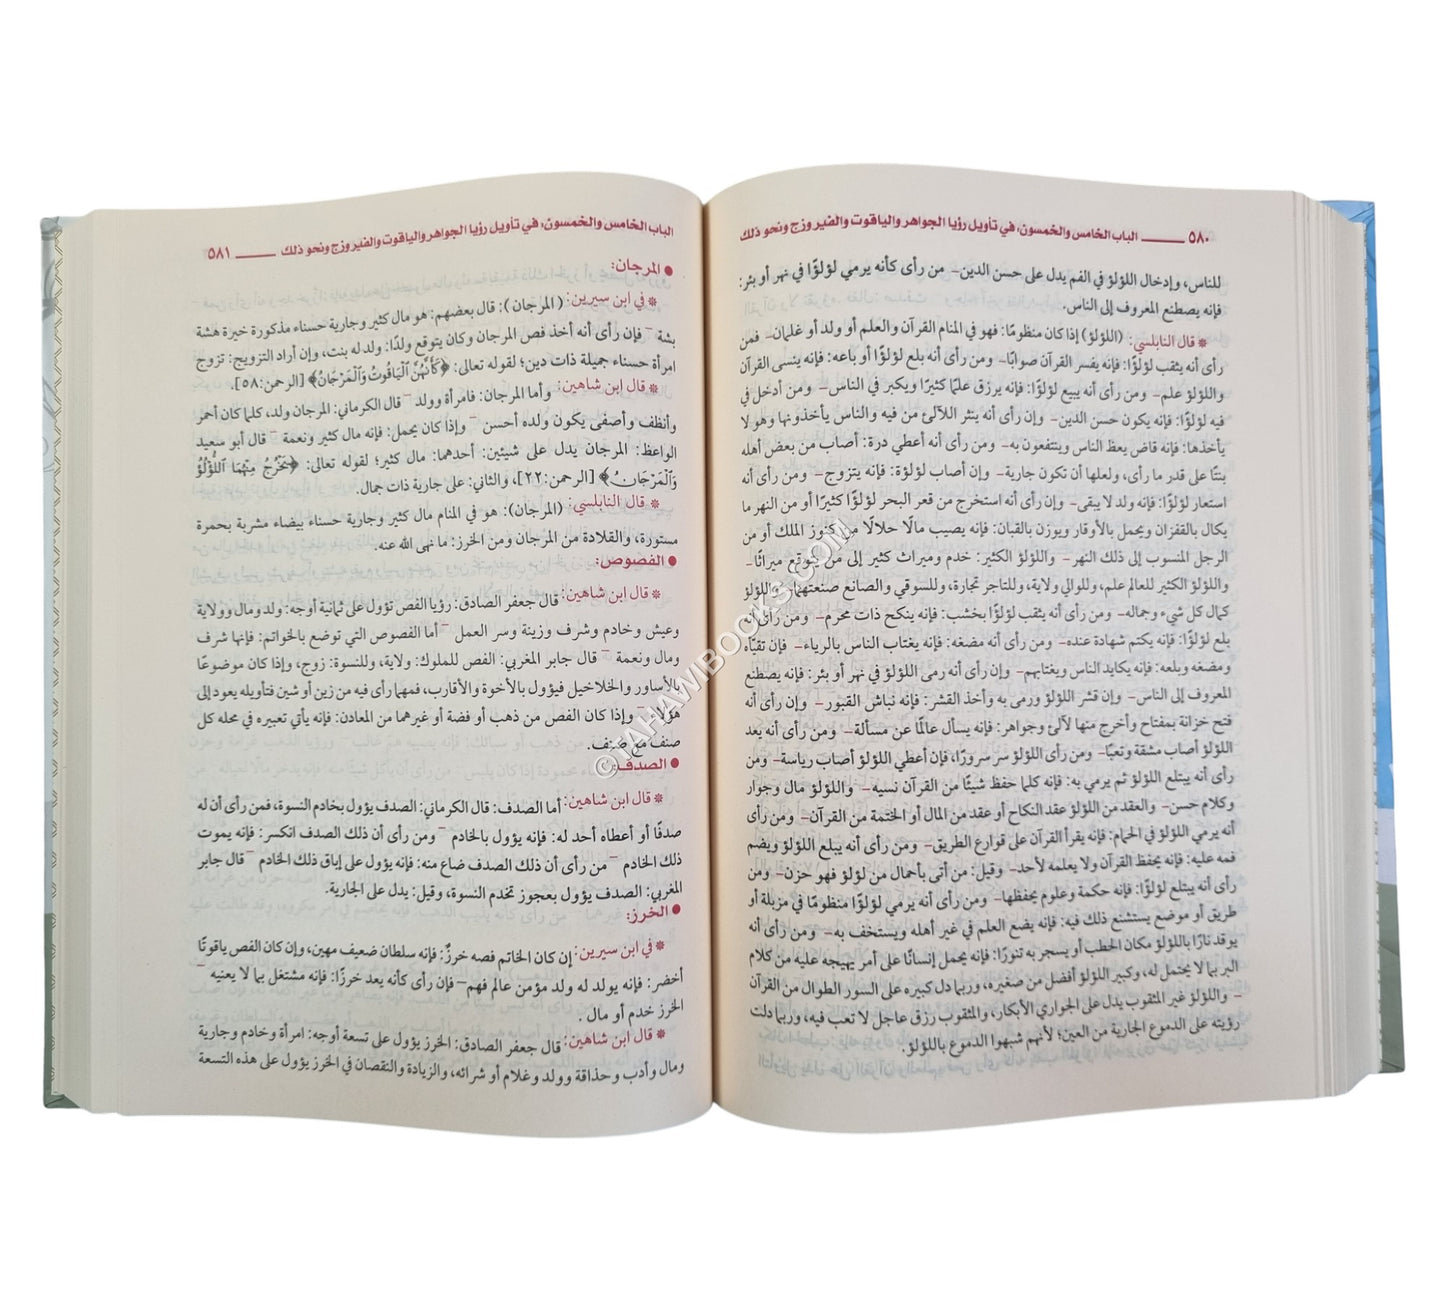 ٥٨٠ ــــــ الباب الخامس والخمسون، في تأويل رؤيا الجواهر والياقوت والفيروزج ونحو ذلك
للناس، وإدخال اللؤلؤ في الفم يدل على حسن الدين– من رأى كأنه يرمي لؤلؤًا في نهر أو بئر:
فإنه يصطنع المعروف إلى الناس.
* قال النابلسي: (اللؤلؤ) إذا كان منظومًا: فهو في المنام القرآن والعلم أو ولد أو غلمان– فمن
رأى أنه يثقب لؤلؤًا: فإنه يفسر القرآن صوابًا– ومن رأى أنه بلع لؤلؤًا أو باعه: فإنه ينسى القرآن
واللؤلؤ علم– ومن رأى أنه يبيع لؤلؤًا: فإنه يرزق علمًا كثيرًا ويكبر في الناس– ومن أدخل في
فيه لؤلؤًا: فإنه يكون حسن الدين– وإن رأى أنه ينثر اللآلئ من فيه والناس يأخذونها وهو لا
يأخذها: فإنه قاض يعظ الناس وينتفعون به– ومن رأى أنه أعطي درة: أصاب من بعض أهله
بنتًا على قدر ما رأى، ولعلها أن تكون جارية– وإن أصاب لؤلؤة: فإنه يتزوج– ومن رأى أنه
استعار لؤلؤًا: فإنه ولد لا يبقى– وإن رأى أنه استخرج من قعر البحر لؤلؤًا كثيرًا أو من النهر ما
يكال بالقفزان ويحمل بالأوقار ويوزن بالقبان: فإنه يصيب مالًا حلالًا من كنوز الملك أو من
الرجل المنسوب إلى ذلك النهر– واللؤلؤ الكثير: خدم وميراث كثير إلى من يتوقع ميراثًا–
واللؤلؤ الكثير للعالم علم، وللوالي ولاية، وللتاجر تجارة، وللسوقي والصانع صنعتهما– واللؤلؤ
كمال كل شيء وجماله– ومن رأى أنه يثقب لؤلؤًا بخشب: فإنه ينكح ذات محرم– ومن رأى أنه
بلع لؤلؤًا: فإنه يكتم شهادة عنده– ومن رأى أنه مضغه: فإنه يغتاب الناس بالرياء– فإن تقيأه
ومضغه وبلعه: فإنه يكايد الناس ويغتابهم– وإن رأى أنه رمى اللؤلؤ في نهر أو بئر: فإنه يصطنع
المعروف إلى الناس– وإن قشر اللؤلؤ ورمى به وأخذ القشر: فإنه نباش القبور– وإن رأى أنه
فتح خزانة بمفتاح وأخرج منها لآلئ وجواهر: فإنه يسأل عالمًا عن مسألة– ومن رأى أنه يعد
اللؤلؤ أصاب مشقة وتعبًا– ومن رأى اللؤلؤ سر سرورًا، فإن أعطي اللؤلؤ أصاب رياسة– ومن
رأى أنه يبتلع اللؤلؤ ثم يرمي به: فإنه كلما حفظ شيئًا من القرآن نسيه– واللؤلؤ مال وجوار
وكلام حسن– والعقد من اللؤلؤ عقد النكاح أو عقد من المال أو الختمة من القرآن– ومن رأى
أنه يرمي اللؤلؤ في الحمام: فإنه يقرأ القرآن على قوارع الطريق– ومن رأى أنه يبلع اللؤلؤ ويضم
فمه عليه: فإنه يحفظ القرآن ولا يعلمه لأحد– وقيل: من أتى بأحمال من لؤلؤ فهو حزن– ومن
رأى أنه يبتلع لؤلؤًا: فإنه حكمة وعلوم يحفظها– ومن رأى أنه يرمي لؤلؤًا منظومًا في مزبلة أو
طريق أو موضع يستشنع ذلك فيه: فإنه يضع العلم في غير أهله ويستخف به– ومن رأى أنه
يوقد نارًا باللؤلؤ مكان الحطب أو يسجر به تنورًا: فإنه يحمل إنسانًا على أمر يهيجه عليه من كلام
البر بما لا يحتمل له، وكبير اللؤلؤ أفضل من صغيره، وربما دل كبيره على السور الطوال من القرآن
– واللؤلؤ غير المثقوب يدل على الجواري الأبكار، والمثقوب رزق عاجل لا تعب فيه، وربما دلت
رؤيته على الدموع الجارية من العين؛ لأنهم شبهوا الدموع باللؤلؤ.
الباب الخامس والخمسون، في تأويل رؤيا الجواهر والياقوت والفيروزج ونحو ذلك ــــــ ٥٨١
● المرجان:
* في ابن سيرين: (المرجان): قال بعضهم: هو مال كثير وجارية حسناء مذكورة خيرة هشة
بشة – فإن رأى أنه أخذ فص المرجان وكان يتوقع ولدًا: ولد له بنت، وإن أراد التزويج: تزوج
امرأة حسناء جميلة ذات دين؛ لقوله تعالى: ﴿كَأَنَّهُنَّ ٱلْيَاقُوتُ وَٱلْمَرْجَانُ﴾ [الرحمن:٥٨].
* قال ابن شاهين: وأما المرجان: فامرأة وولد – قال الكرماني: المرجان ولد، كلما كان أحمر
وأنظف وأصفى يكون ولده أحسن – وإذا كان يحمل: فإنه مال كثير ونعمة – قال أبو سعيد
الواعظ: المرجان يدل على شيئين: أحدهما: مال كثير؛ لقوله تعالى: ﴿يَخْرُجُ مِنْهُمَا ٱللُّؤْلُؤُ
وَٱلْمَرْجَانُ﴾ [الرحمن:٢٢]، والثاني: على جارية ذات جمال.
* قال النابلسي: (المرجان): هو في المنام مال كثير وجارية حسناء بيضاء مشربة بحمرة
مستورة، والقلادة من المرجان ومن الخرز: ما نهى الله عنه.
● الفصوص:
* قال ابن شاهين: قال جعفر الصادق: رؤيا الفص تؤول على ثمانية أوجه: ولد ومال وولاية
وعيش وخادم وشرف وزينة وسر العمل – أما الفصوص التي توضع بالخواتم: فإنها شرف
ومال ونعمة – قال جابر المغربي: الفص للملوك: ولاية، وللنسوة: زوج، وإذا كان موضوعًا
بالأساور والخلاخيل فيؤول بالأخوة والأقارب، فمهما رأى فيه من زين أو شين فتأويله يعود إلى
هؤلاء – وإذا كان الفص من ذهب أو فضة أو غيرهما من المعادن: فإنه يأتي تعبيره في محله كل
صنف مع صنف.
● الصدف:
* قال ابن شاهين: أما الصدف: قال الكرماني: الصدف يؤول بخادم النسوة، فمن رأى أن له
صدفًا أو أعطاه أحد له: فإنه يؤول بالخادم – ومن رأى أن ذلك الصدف انكسر: فإنه يموت
ذلك الخادم – من رأى أن ذلك الصدف ضاع منه: فإنه يؤول على إباق ذلك الخادم – قال جابر
المغربي: الصدف يؤول بعجوز تخدم النسوة، وقيل: يدل على الجارية.
● الخرز:
* في ابن سيرين: إن كان الخاتم فصه خرزٌ: فإنه سلطان ضعيف مهين، وإن كان الفص ياقوتًا
أخضر: فإنه يولد له ولد مؤمن عالم فهم– فإن رأى كأنه يعد خرزًا: فإنه مشتغل بما لا يعنيه –
الخرز خدم أو مال .
* قال ابن شاهين: قال جعفر الصادق: الخرز يؤول على تسعة أوجه: امرأة وخادم وجارية
ومال وأدب وحذاقة وولد وغلام أو شرائه، والزيادة والنقصان في الخرز يؤول على هذه التسعة
©TAHAWIBOOKS.COM